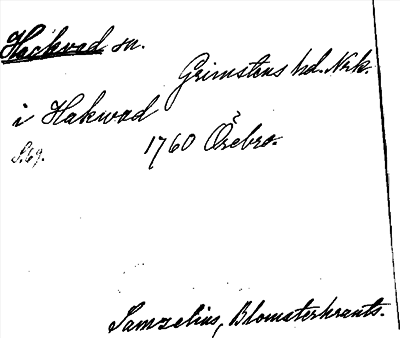 Hackvad sn.
Grimstens hd. Nrk.
i Hakwad
1760 Örebro.
S. 69.
Samzelius, Blomsterkrants.